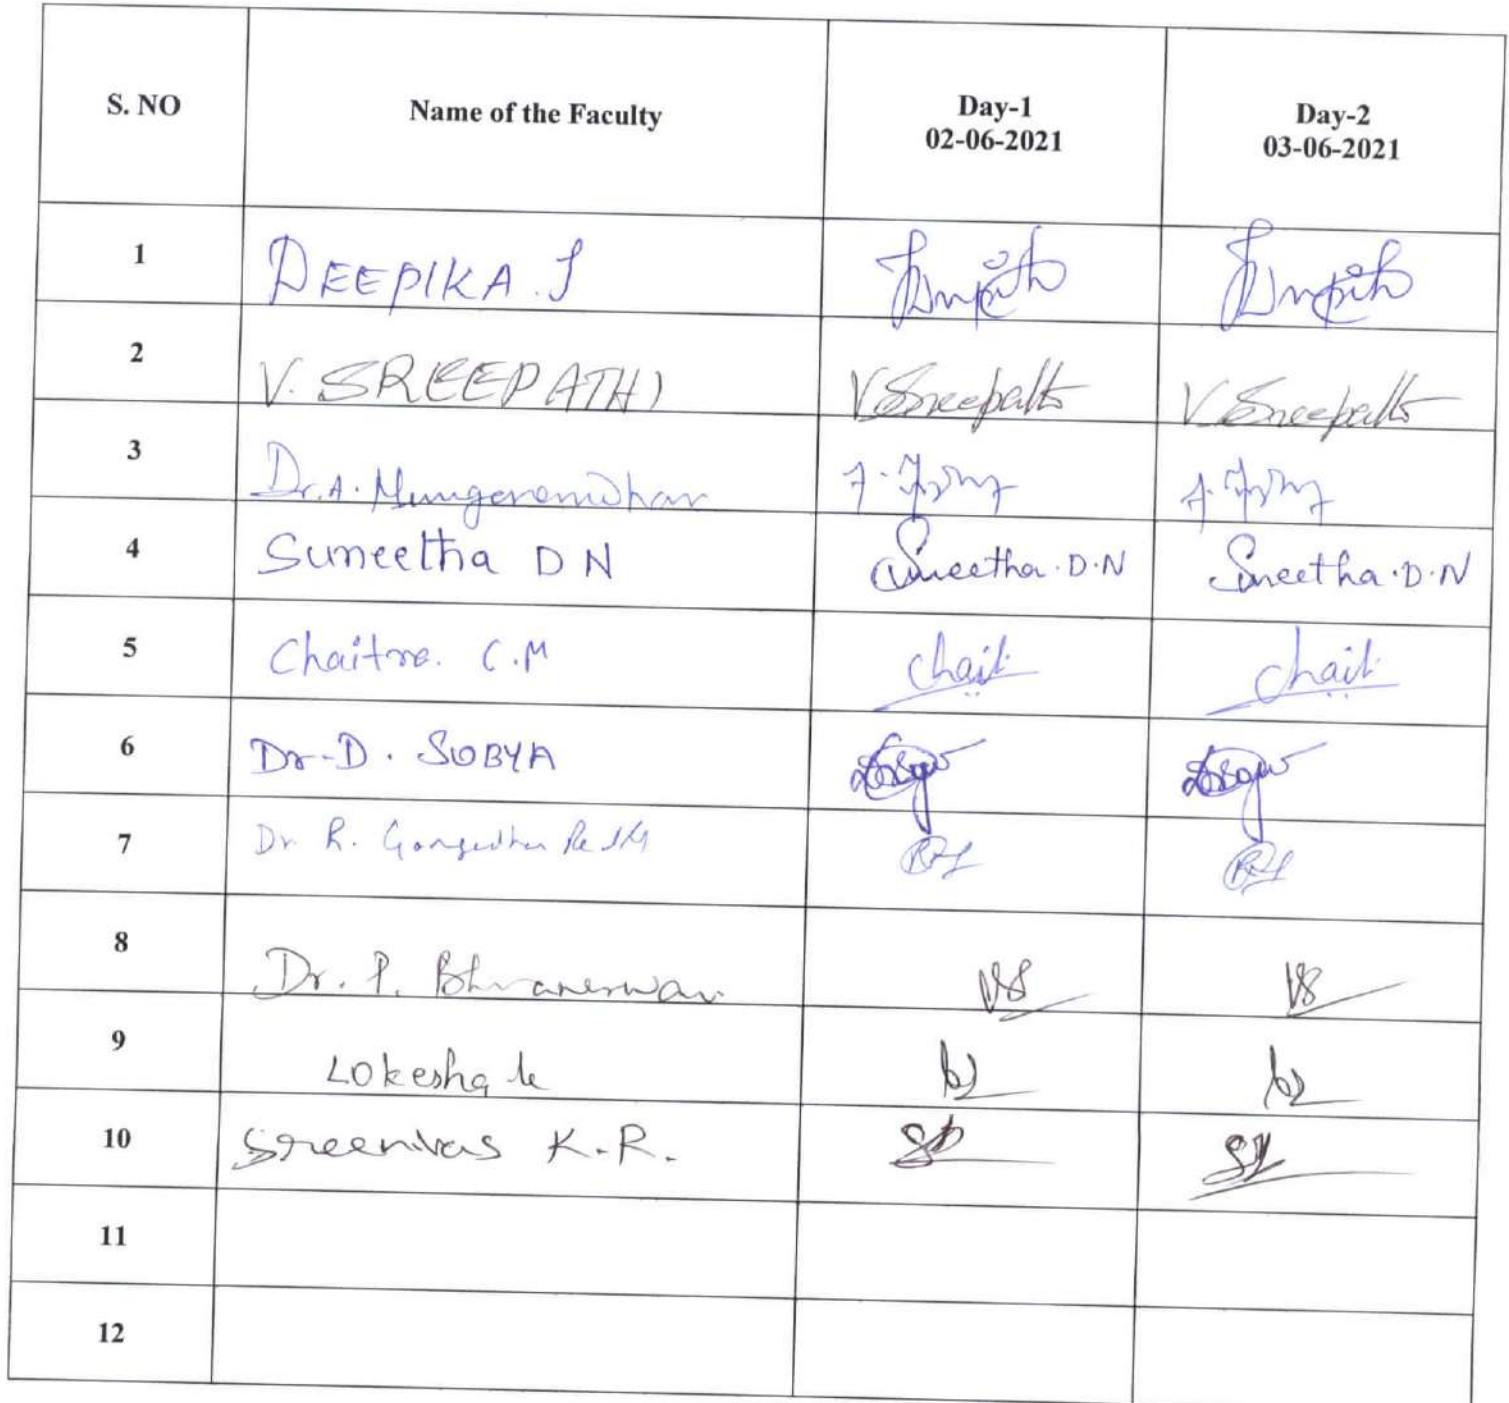 S. NO
Name of the Faculty
Day-1
02-06-2021
Day-2
03-06-2021
1
DEEPIKA. J
2
V. SREEPATHI
V Sreepathi
V Sreepathi
3
Dr. A.
4
Suneetha D N
Suneetha. D.N
Suneetha.D.N
5
Chaitra. C.M
Chait
Chait
6
Dr. D. SOBYA
7
Dr. R.
8
Dr. P. Bhuvaneswari
9
Lokesha
10
Sreenivas K.R.
11
12